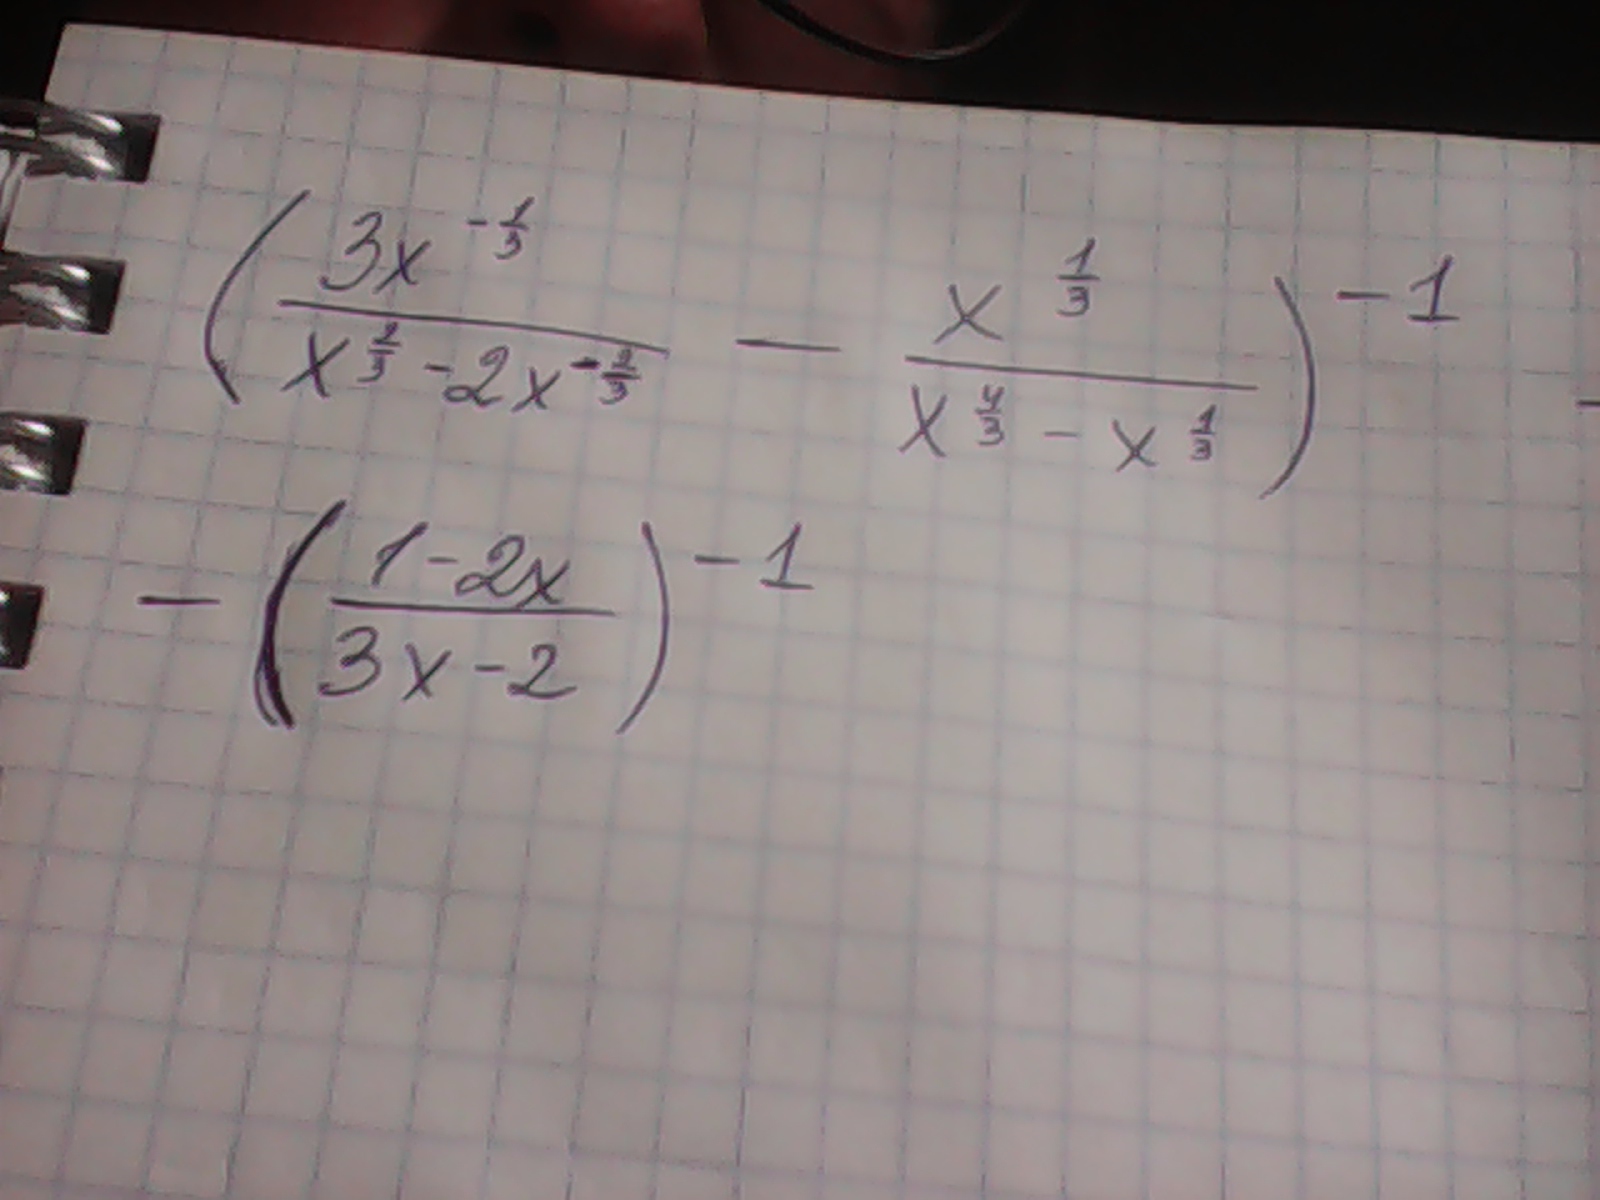 (3x^{-1/3} / (x^{2/3} - 2x^{-2/3}) - x^{1/3} / (x^{4/3} - x^{1/3}))^{-1} -
- ((1-2x) / (3x-2))^{-1}